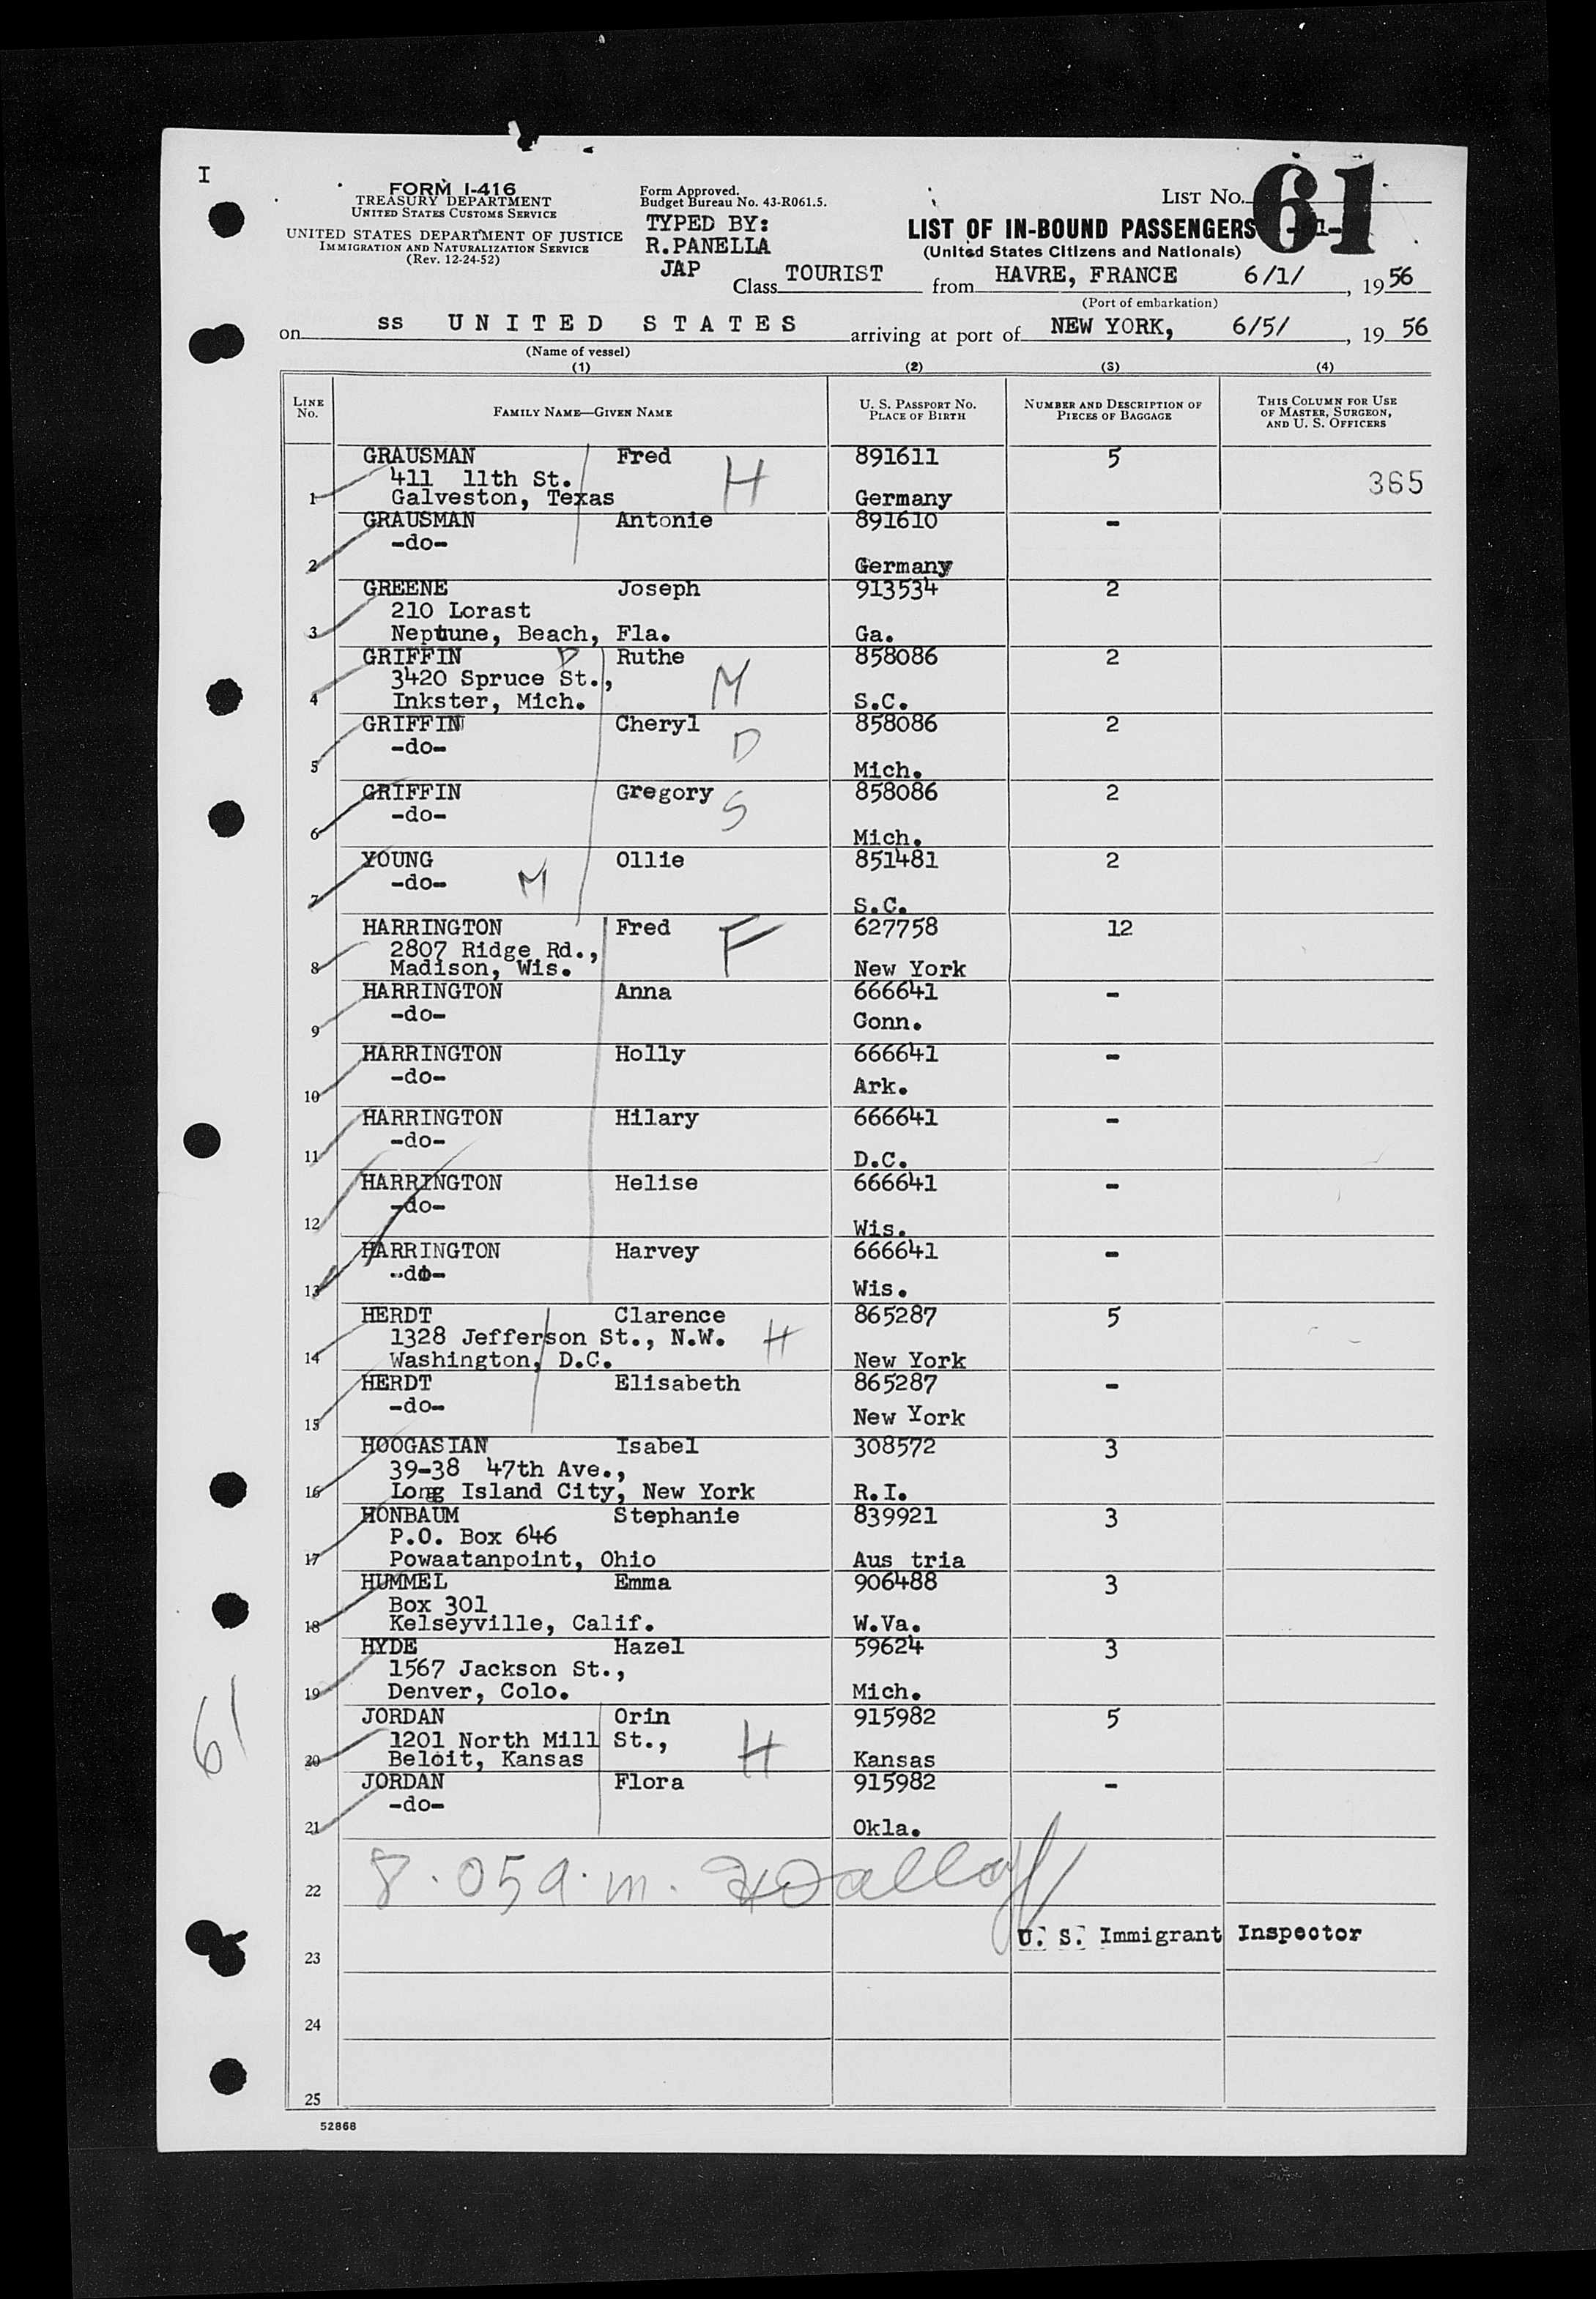 I
FORM I-416
TREASURY DEPARTMENT
UNITED STATES CUSTOMS SERVICE
UNITED STATES DEPARTMENT OF JUSTICE
IMMIGRATION AND NATURALIZATION SERVICE
(Rev. 12-24-52)
Form Approved.
Budget Bureau No. 43-R061.5.
TYPED BY:
R.PANELLA
JAP
LIST No. 61
LIST OF IN-BOUND PASSENGERS
(United States Citizens and Nationals)
Class TOURIST from HAVRE, FRANCE 6/1/, 1956
(Port of embarkation)
on ss UNITED STATES arriving at port of NEW YORK, 6/5/, 19 56
(Name of vessel)
(1) (2) (3) (4)
LINE No. FAMILY NAME—GIVEN NAME U. S. PASSPORT No. PLACE OF BIRTH NUMBER AND DESCRIPTION OF PIECES OF BAGGAGE THIS COLUMN FOR USE OF MASTER, SURGEON, AND U. S. OFFICERS
GRAUSMAN Fred 891611 5
411 11th St. H 365
1 Galveston, Texas Germany
GRAUSMAN Antonie 891610 -
-do-
2 Germany
GREENE Joseph 913534 2
210 Lorast
3 Neptune, Beach, Fla. Ga.
GRIFFIN D Ruthe 858086 2
3420 Spruce St., M
4 Inkster, Mich. S.C.
GRIFFIN Cheryl 858086 2
-do- D
5 Mich.
GRIFFIN Gregory 858086 2
-do- S
6 Mich.
YOUNG Ollie 851481 2
-do- M
7 S.C.
HARRINGTON Fred 627758 12
2807 Ridge Rd., F
8 Madison, Wis. New York
HARRINGTON Anna 666641 -
-do-
9 Conn.
HARRINGTON Holly 666641 -
-do-
10 Ark.
HARRINGTON Hilary 666641 -
-do-
11 D.C.
HARRINGTON Helise 666641 -
-do-
12 Wis.
HARRINGTON Harvey 666641 -
-do-
13 Wis.
HERDT Clarence 865287 5
1328 Jefferson St., N.W. H
14 Washington, D.C. New York
HERDT Elisabeth 865287 -
-do-
15 New York
HOOGASIAN Isabel 308572 3
39-38 47th Ave.,
16 Long Island City, New York R.I.
HONBAUM Stephanie 839921 3
P.O. Box 646
17 Powaatanpoint, Ohio Aus tria
HUMMEL Emma 906488 3
Box 301
18 Kelseyville, Calif. W.Va.
HYDE Hazel 59624 3
1567 Jackson St.,
19 Denver, Colo. Mich.
JORDAN Orin 915982 5
1201 North Mill St., H
20 Beloit, Kansas Kansas
JORDAN Flora 915982 -
-do-
21 Okla.
61
22 8.05 a.m.
U. S. Immigrant Inspector
23
24
25
52868